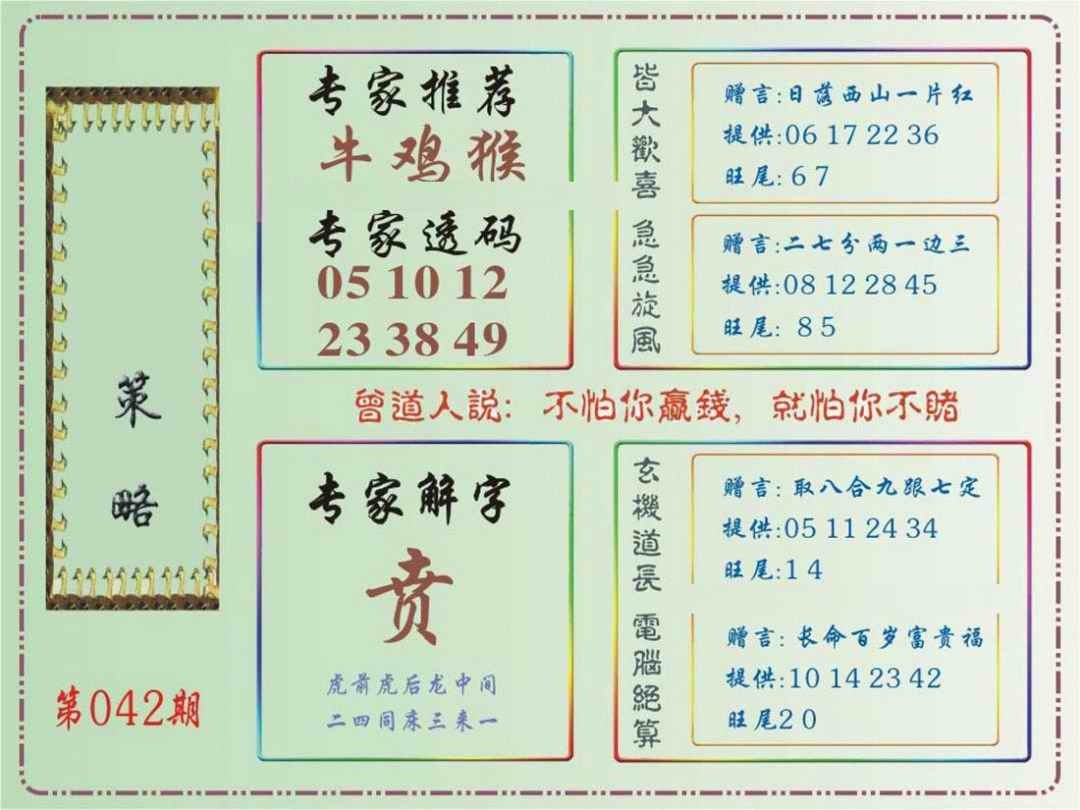 策略
第042期
专家推荐
牛鸡猴
专家透码
05 10 12
23 38 49
皆大歡喜
赠言:日落西山一片红
提供:06 17 22 36
旺尾:6 7
急急旋风
赠言:二七分两一边三
提供:08 12 28 45
旺尾: 8 5
曾道人説: 不怕你赢錢, 就怕你不賭
专家解字
贲
虎前虎后龙中间
二四同床三来一
玄機道長
赠言: 取八合九跟七定
提供:05 11 24 34
旺尾:1 4
電腦絕算
赠言: 长命百岁富贵福
提供:10 14 23 42
旺尾2 0